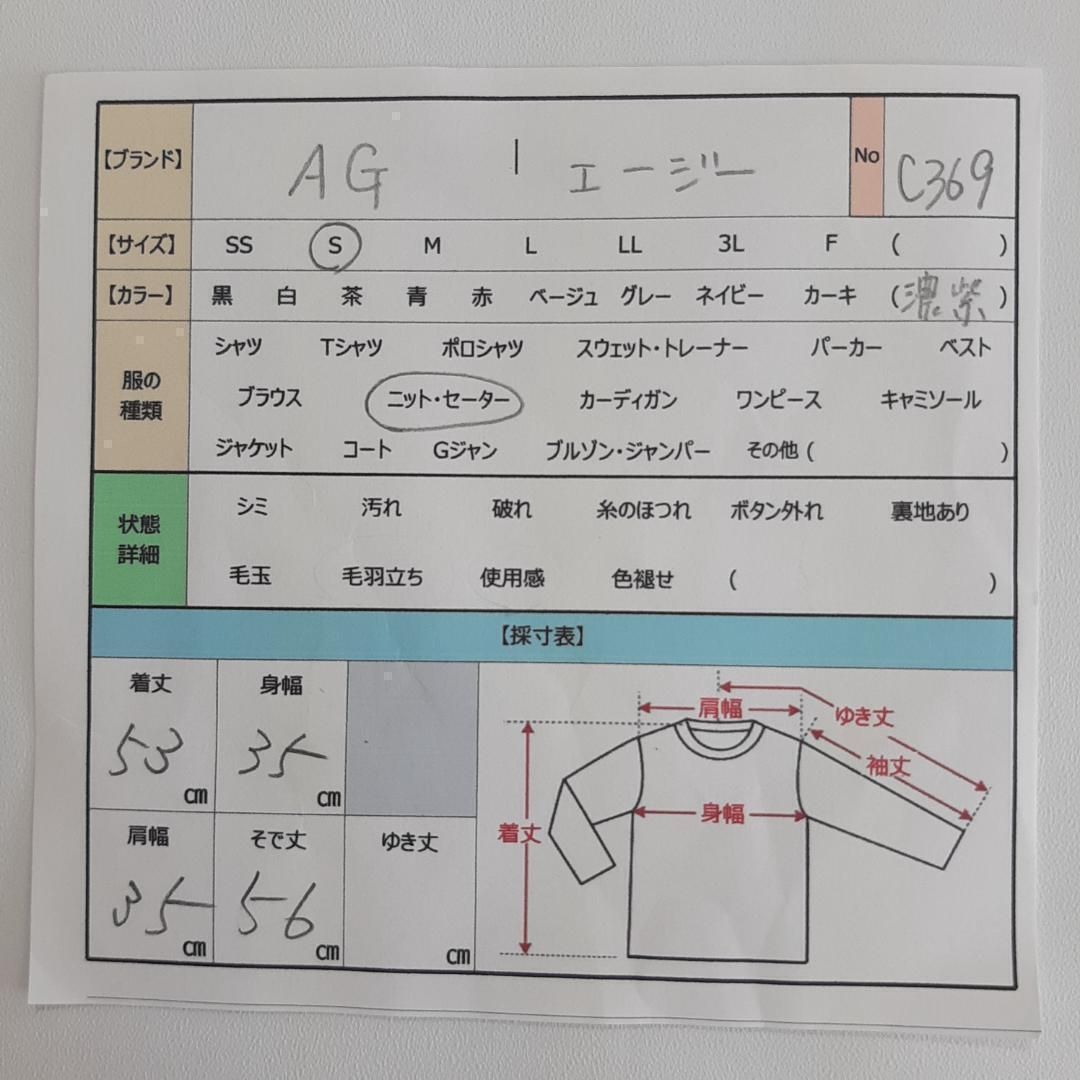 【ブランド】 AG | エージー No C369
【サイズ】 SS S M L LL 3L F ( )
【カラー】 黒 白 茶 青 赤 ベージュ グレー ネイビー カーキ (濃紫)
服の種類
シャツ Tシャツ ポロシャツ スウェット・トレーナー パーカー ベスト
ブラウス ニット・セーター カーディガン ワンピース キャミソール
ジャケット コート Gジャン ブルゾン・ジャンパー その他 ( )
状態詳細
シミ 汚れ 破れ 糸のほつれ ボタン外れ 裏地あり
毛玉 毛羽立ち 使用感 色褪せ ( )
【採寸表】
着丈 身幅
53 cm 35 cm
肩幅 そで丈 ゆき丈
35 cm 56 cm cm
肩幅 ゆき丈
袖丈
身幅
着丈